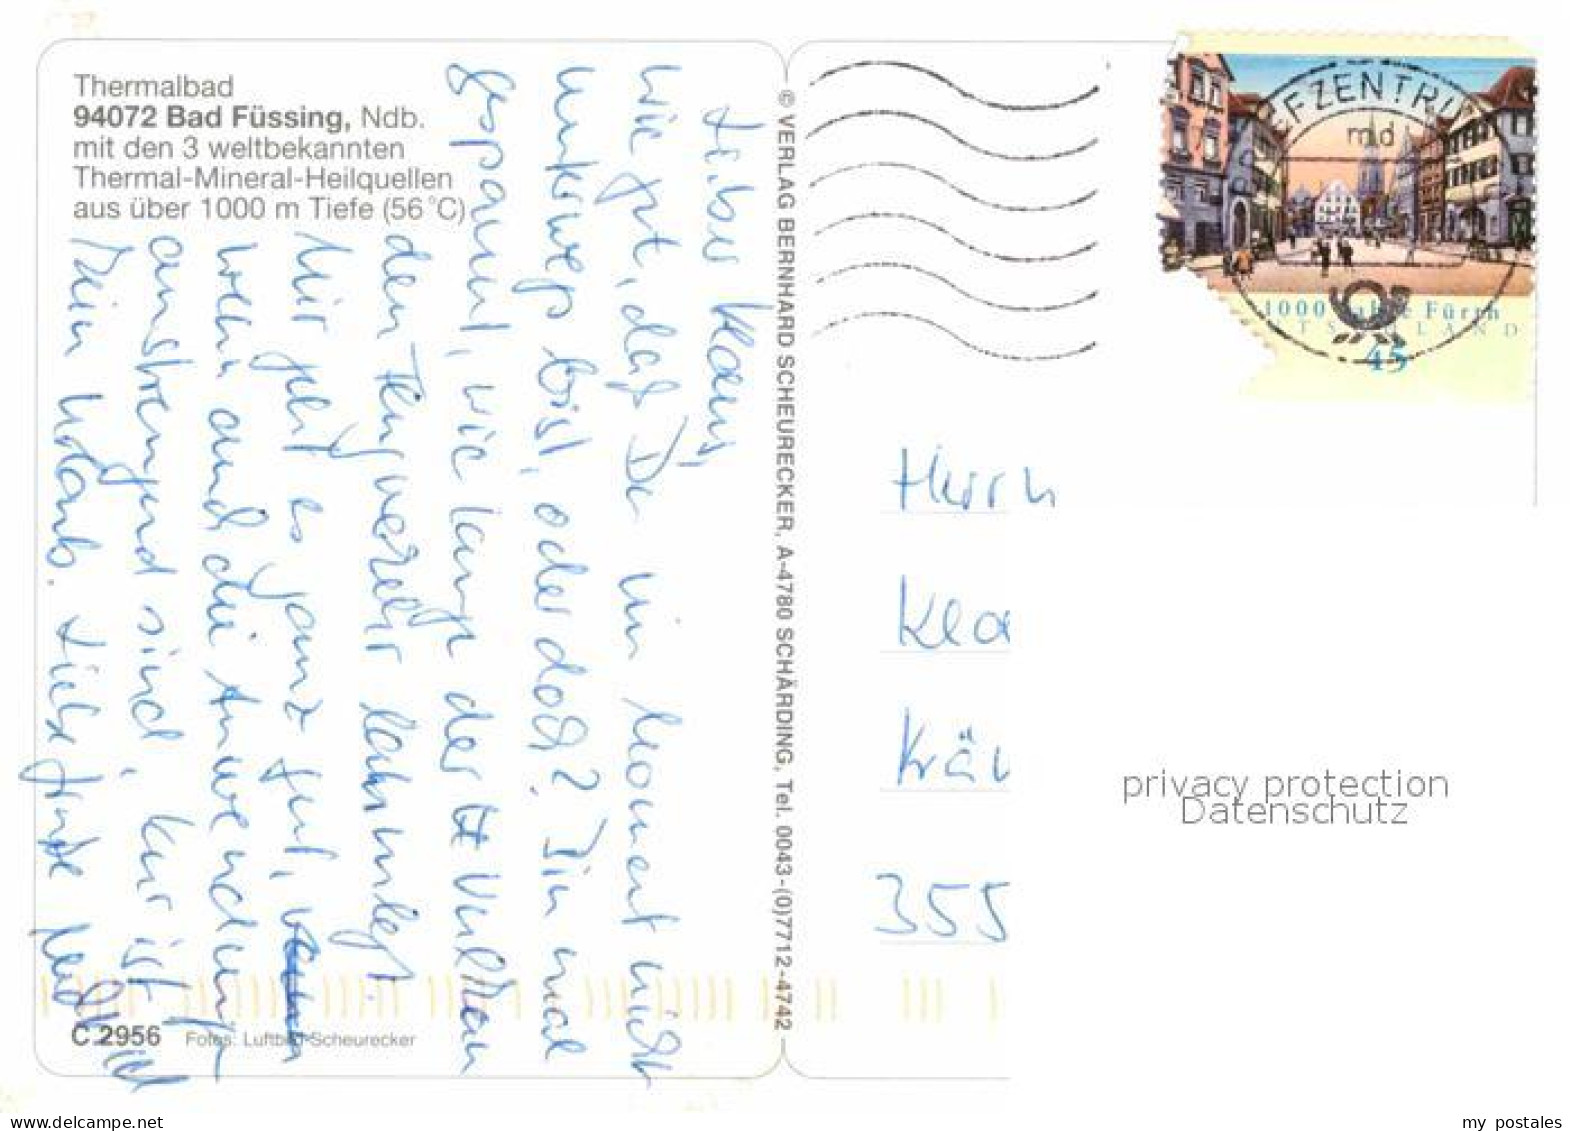 Thermalbad
94072 Bad Füssing, Ndb.
mit den 3 weltbekannten
Thermal-Mineral-Heilquellen
aus über 1000 m Tiefe (56 °C)
Lieber Klaus,
wie gut, daß Du im Moment nicht
unterwegs bist, oder doch? Bin mal
gespannt, wie lange der Vulkan
den Flugverkehr lahmlegt.
Mir geht es ganz gut,
wenn auch die Anwendungen
anstrengend sind, Kur ist
kein Urlaub. Liebe Grüße
C 2956
Fotos: Luftbild-Scheurecker
© VERLAG BERNHARD SCHEURECKER, A-4780 SCHÄRDING, Tel. 0043-(0)7712-4742
EFZENTRU
md
1000 Jahre Fürth
DEUTSCHLAND
45
Herrn
Kla
Kä
355
privacy protection
Datenschutz
my postales